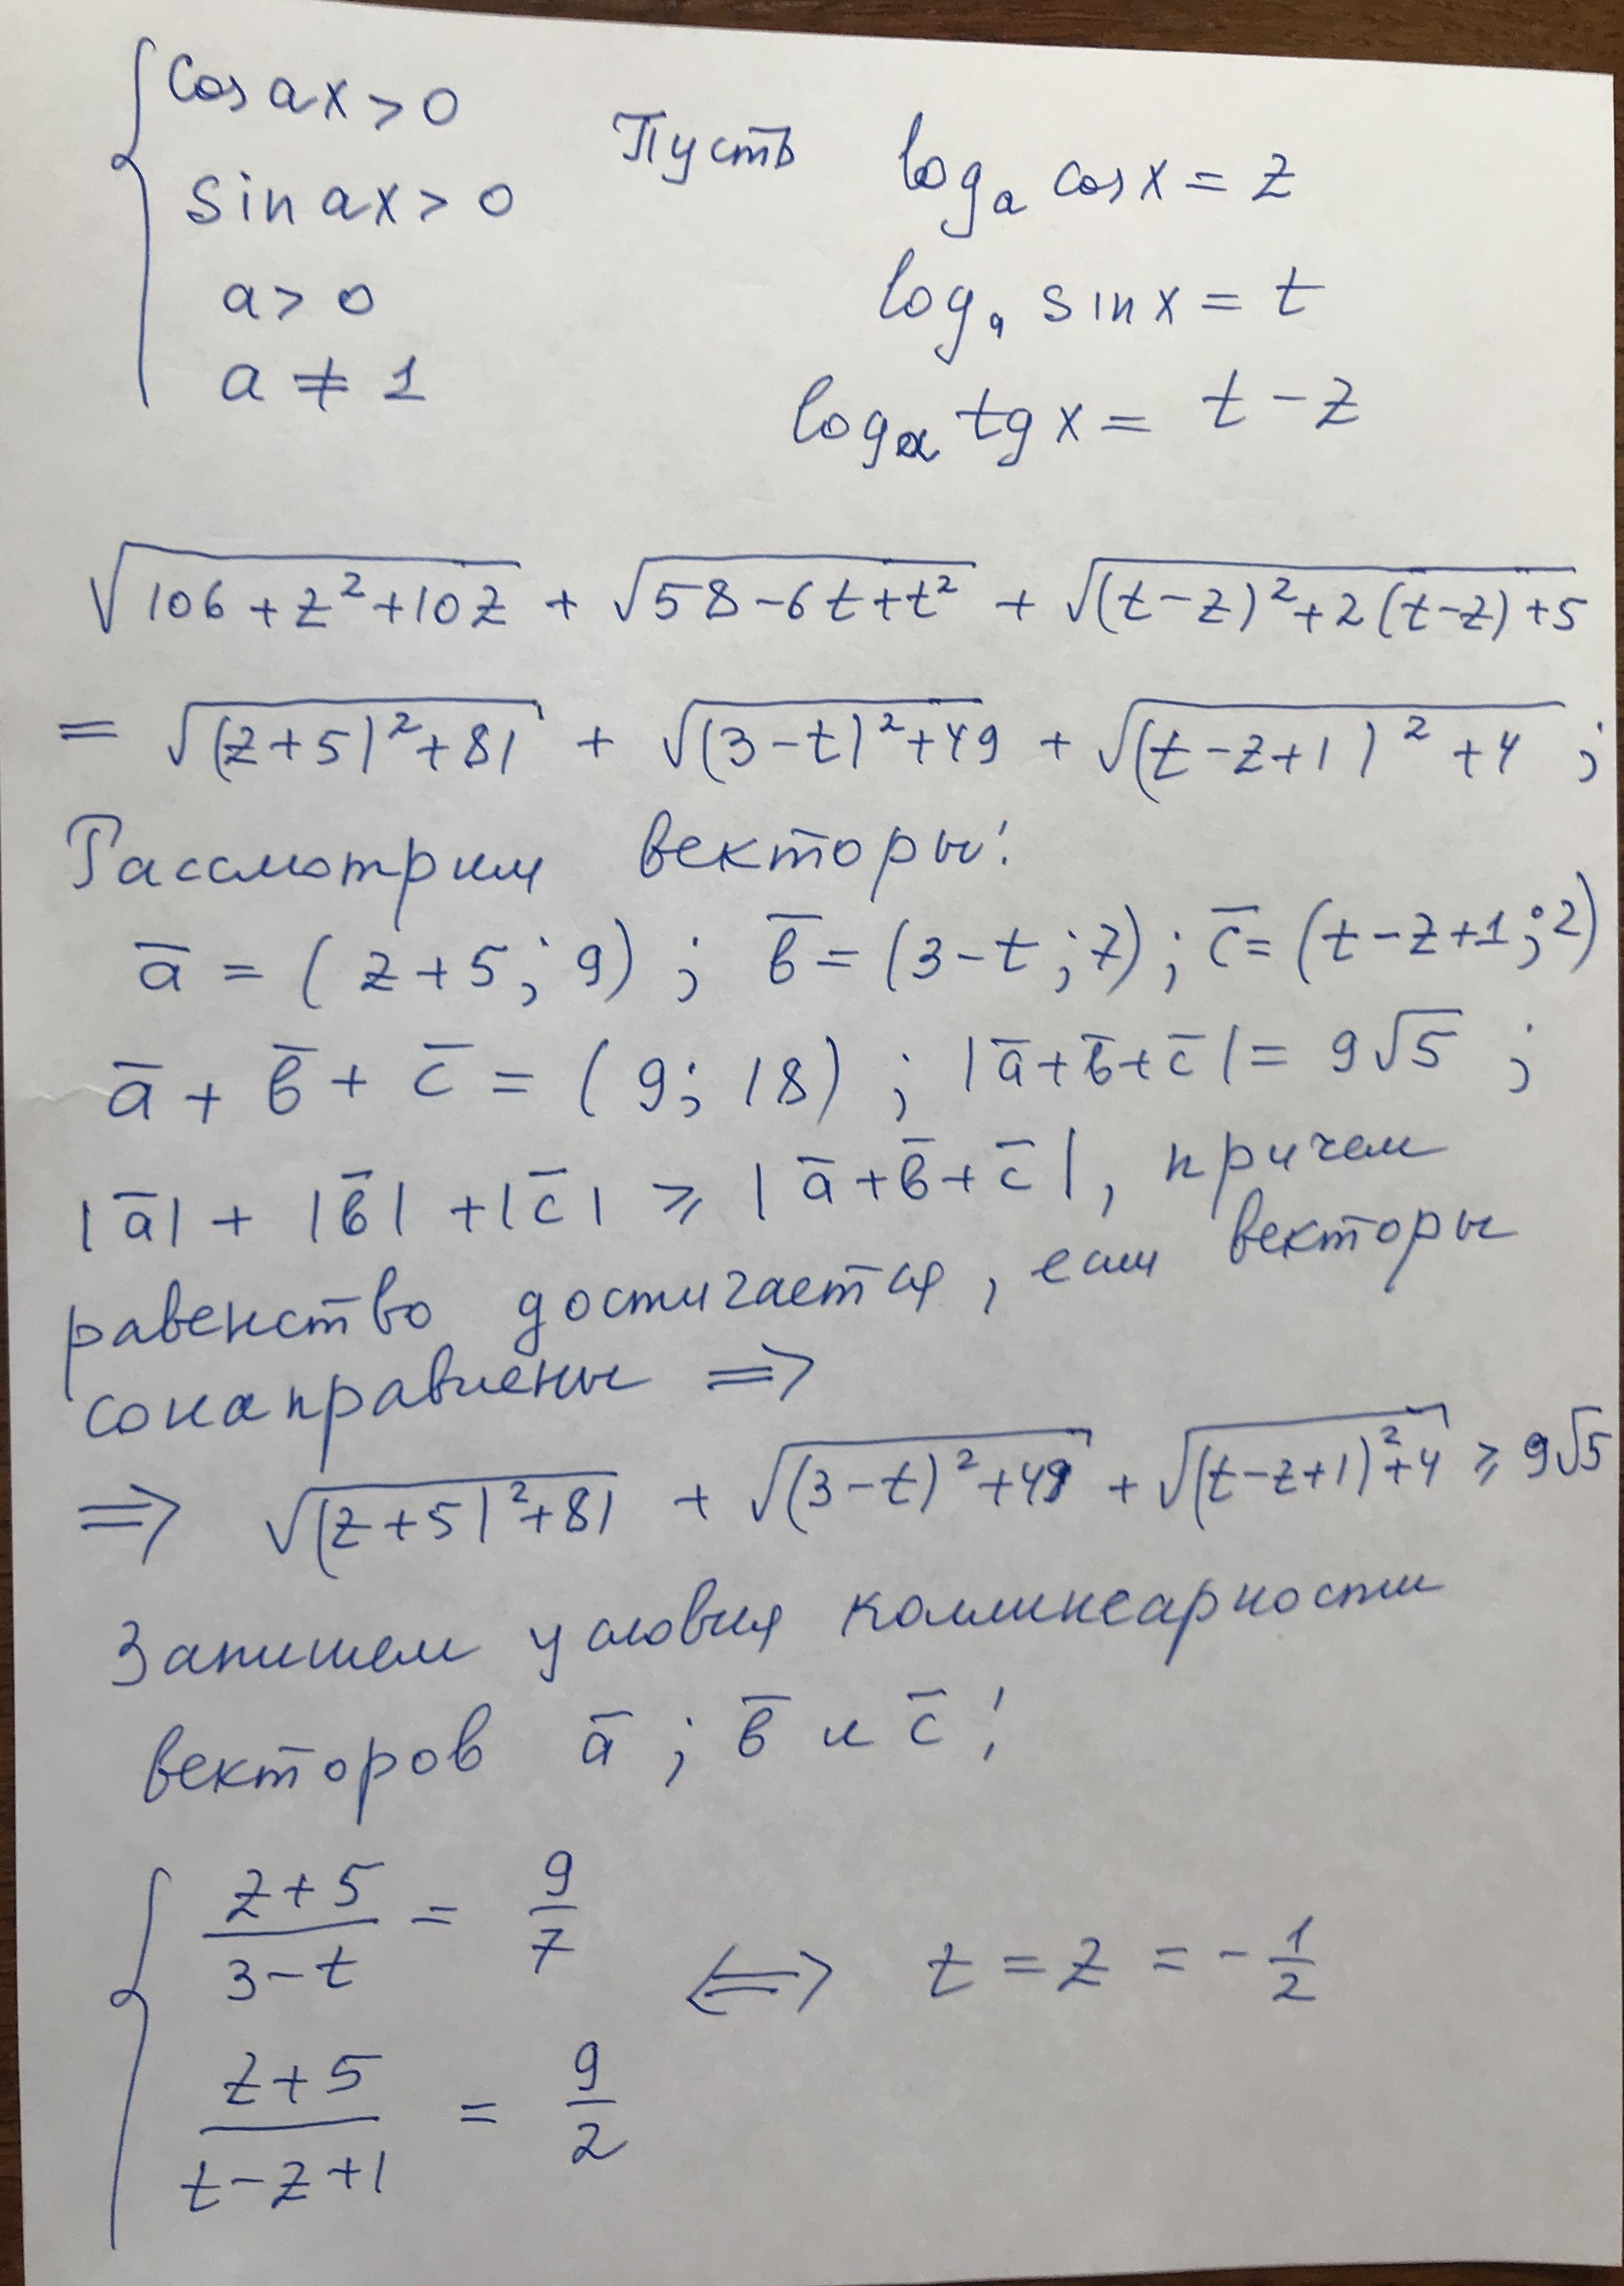 cos ax > 0
sin ax > 0
a > 0
a ≠ 1
Пусть log_a cos x = z
log_a sin x = t
log_a tg x = t - z
√(106 + z² + 10z) + √(58 - 6t + t²) + √((t - z)² + 2(t - z) + 5)
= √((z + 5)² + 81) + √((3 - t)² + 49) + √((t - z + 1)² + 4) ;
Рассмотрим векторы:
a̅ = (z + 5; 9) ; b̅ = (3 - t; 7) ; c̅ = (t - z + 1; 2)
a̅ + b̅ + c̅ = (9; 18) ; |a̅ + b̅ + c̅| = 9√5 ;
|a̅| + |b̅| + |c̅| ≥ |a̅ + b̅ + c̅|, причем
равенство достигается, если векторы
сонаправлены ⇒
⇒ √((z + 5)² + 81) + √((3 - t)² + 49) + √((t - z + 1)² + 4) ≥ 9√5
Запишем условия коллинеарности
векторов a̅ ; b̅ и c̅ :
(z + 5)/(3 - t) = 9/7 ⇔ t = z = - 1/2
(z + 5)/(t - z + 1) = 9/2